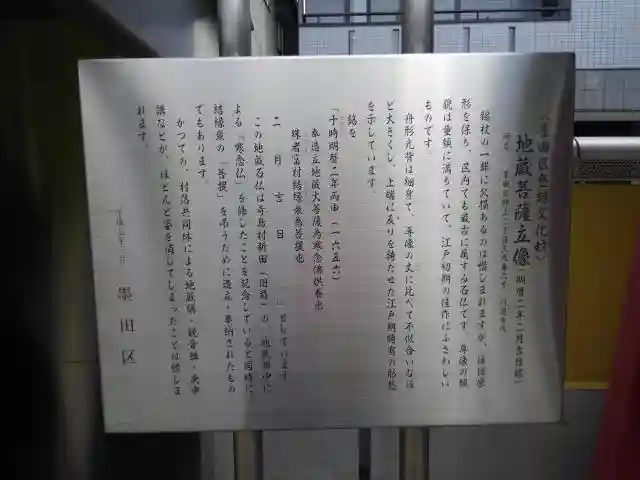 地蔵菩薩立像（明暦二年二月吉日銘）
錫杖の一部に欠損があるのは惜しまれますが、ほぼ原
形を保ち、区内でも最古に属する石仏です。尊像の頬
貌は重頬に満ちていて、江戸初期の佳作にふさわしい
ものです。
舟形光背は細身で、尊像の丈に比べて不似合いなほ
ど大きくし、上端に反りを持たせた江戸期特有の形態
を示しています。
銘を
「于時明暦二年丙申（一六五六）
奉造立地蔵大菩薩為寒念佛供養也
殊者當村結縁衆為菩提也
二月吉日　」としています
この地蔵石仏は寺島村新田（旧称）の、地蔵講中に
よる「寒念仏」を修したことを記念していると同時に
結縁衆の「菩提」を弔うために造立・奉納されたもの
でもあります。
かつての、村落共同体による地蔵講・観音講・庚申
講などが、ほとんど姿を消してしまったことは惜しま
れます。
墨田区